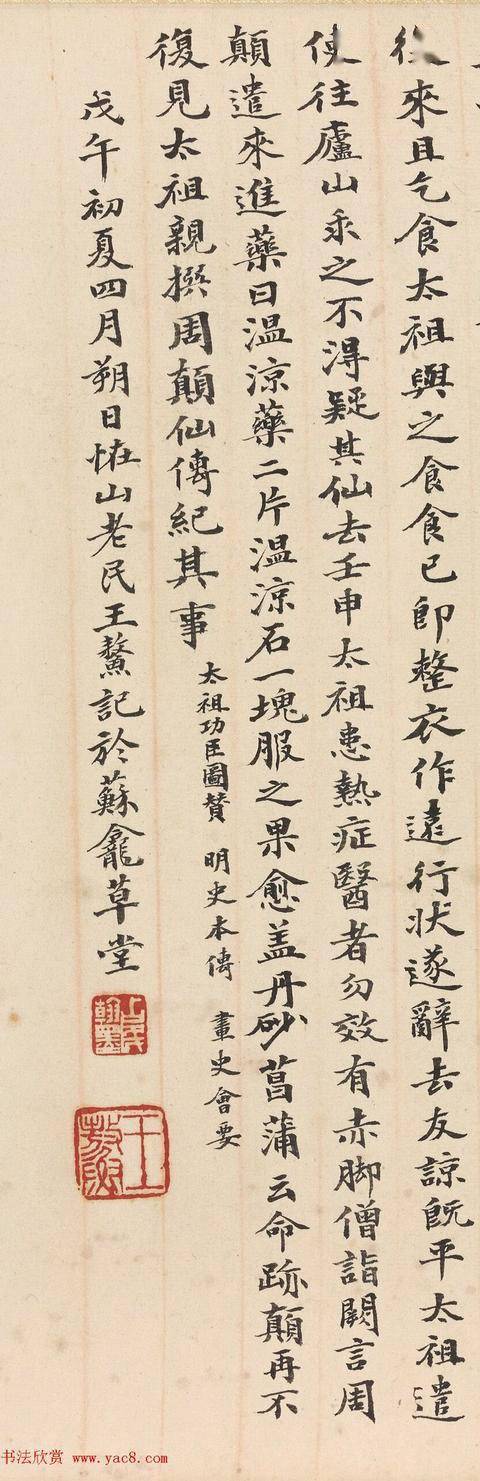 後來且乞食太祖與之食食已即整衣作遠行狀遂辭去友諒既平太祖遣
使往廬山求之不得疑其仙去壬申太祖患熱症醫者勿效有赤脚僧詣闕言周
顛遣來進藥曰溫涼藥二片溫涼石一塊服之果愈盖丹砂菖蒲云命跡顛再不
復見太祖親撰周顛仙傳紀其事
太祖功臣圖贊 明史本傳 畫史會要
戊午初夏四月朔日恠山老民王鰲記於蘇龕草堂
書法欣赏 www.yac8.com